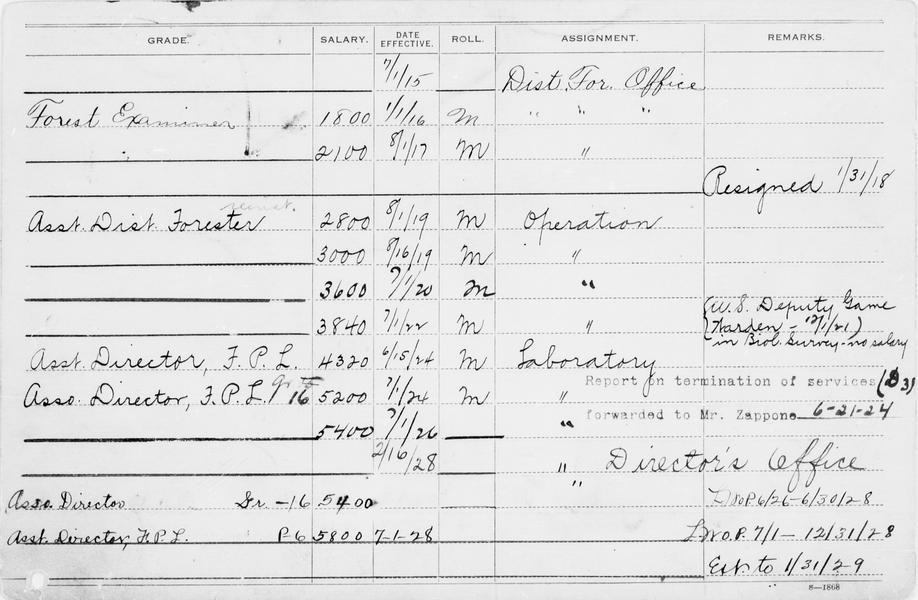 GRADE. SALARY. DATE EFFECTIVE. ROLL. ASSIGNMENT. REMARKS.
7/1/15 Dist. For. Office
Forest Examiner 1800 1/1/16 M " " "
" 2100 8/1/17 M "
Resigned 1/31/18
reinst.
Asst. Dist. Forester 2800 8/1/19 M Operation
3000 8/16/19 M "
3600 7/1/20 M "
(U.S. Deputy Game
3840 7/1/22 M " Warden - 12/1/21)
in Biol. Survey - no salary
Asst. Director, F.P.L. 4320 6/15/24 M Laboratory
Report on termination of services
Asso. Director, F.P.L. Gr 16 5200 7/1/24 M "
forwarded to Mr. Zappone 6-21-24
5400 7/1/26 "
2/16/28 " Director's Office
"
Asso. Director Gr. -16 5400 LWOP 6/26-6/30/28
Asst. Director, F.P.L. P6 5800 7-1-28 L.W.O.P. 7/1 - 12/31/28
Ext. to 1/31/29
8—1868